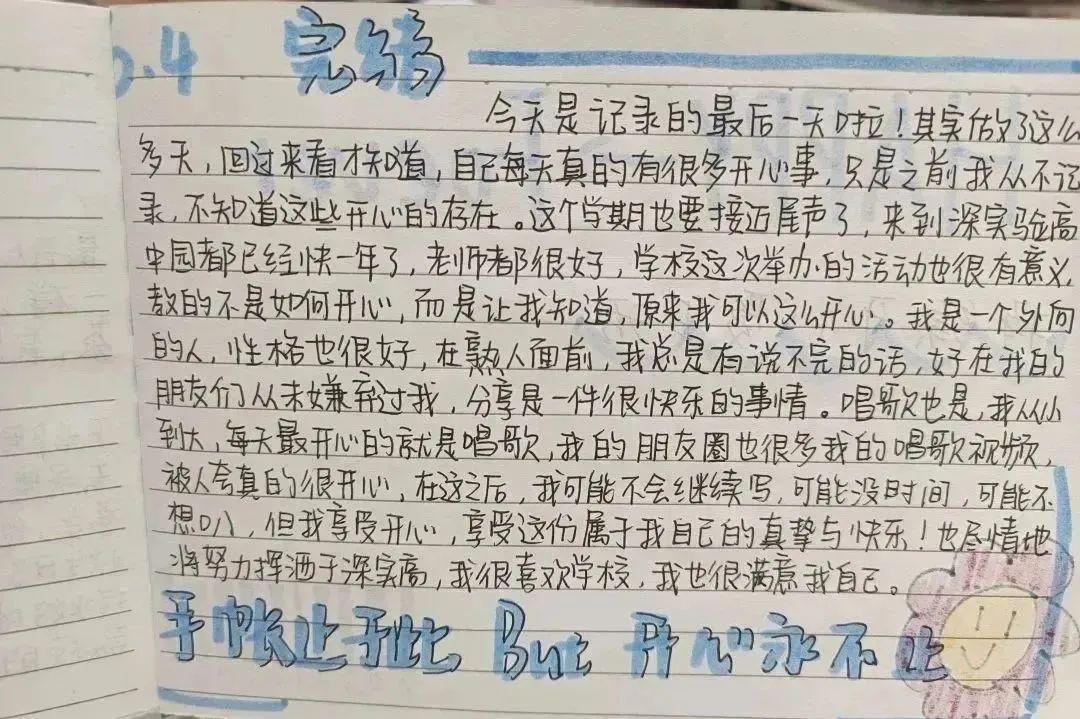 .4 完结
今天是记录的最后一天啦！其实做了这么
多天，回过来看才知道，自己每天真的有很多开心事，只是之前我从不记
录，不知道这些开心的存在。这个学期也要接近尾声了，来到深实验高
中园都已经快一年了，老师都很好，学校这次举办的活动也很有意义，
教的不是如何开心，而是让我知道，原来我可以这么开心。我是一个外向
的人，性格也很好，在熟人面前，我总是有说不完的话，好在我的
朋友们从未嫌弃过我，分享是一件很快乐的事情。唱歌也是，我从小
到大，每天最开心的就是唱歌，我的朋友圈也很多我的唱歌视频，
被人夸真的很开心，在这之后，我可能不会继续写，可能没时间，可能不
想叭，但我享受开心，享受这份属于我自己的真挚与快乐！也尽情地
将努力挥洒于深实高，我很喜欢学校，我也很满意我自己。
手帐止于此 But 开心永不止